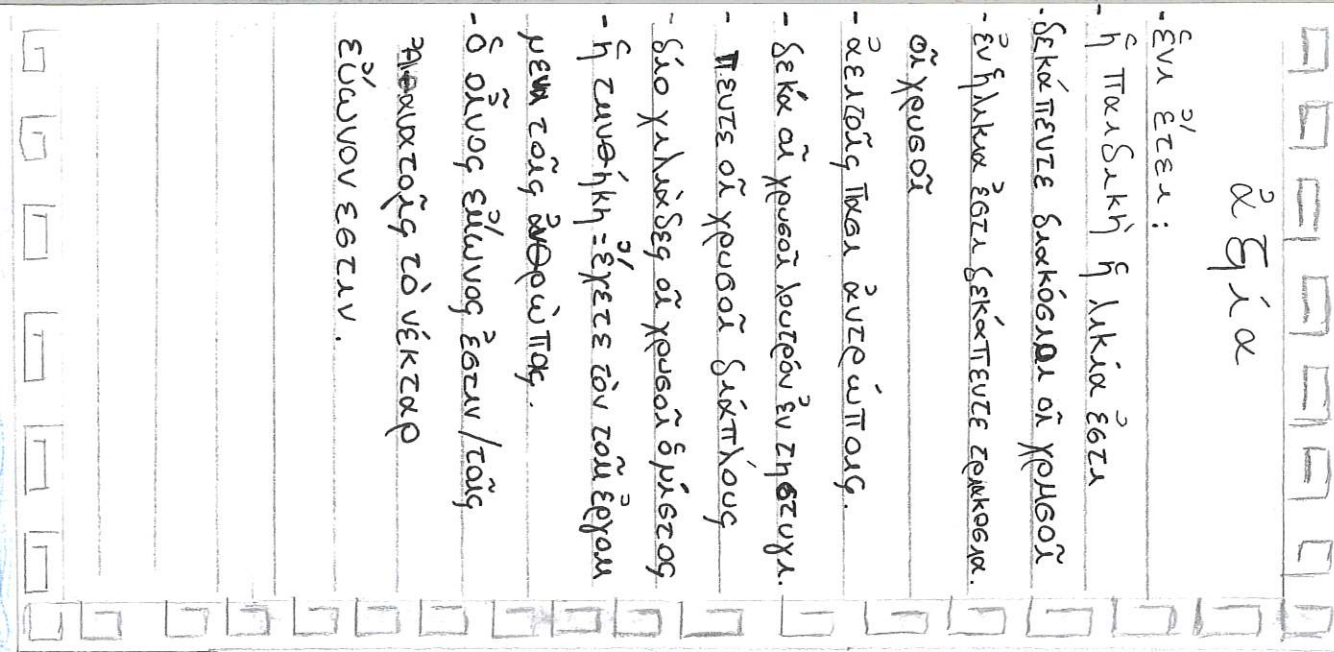 ἀξία
- ἑνι ἔτει:
- ἡ παιδικὴ ἡ λικία ἐστι
- δεκάπεντε διακόσιαι οἱ χρυσοῖ
- ἐν ἡλικια ἐστι δεκάπεντε τριακοσια.
οἱ χρυσοῖ
- ἀελτοῖς πασι ἀντρώποις.
- δεκά οἱ χρυσοῖ λουτρόν ἐν τη στυγι.
- πεντε οἱ χρυσοῖ διάπλους
- δίο χιλιάδες οἱ χρυσοῖ ὁ μίστος
- ἡ συνθήκη = ἔχετε τὸν τοῖμ ἐργομ
μενα τοῖς ἀνθρώποις.
- ὁ οἶνος εὔωνος ἐστιν / τοῖς
Ἀθαιατοῖς τὸ νέκταρ
εὔωνον εστιν.